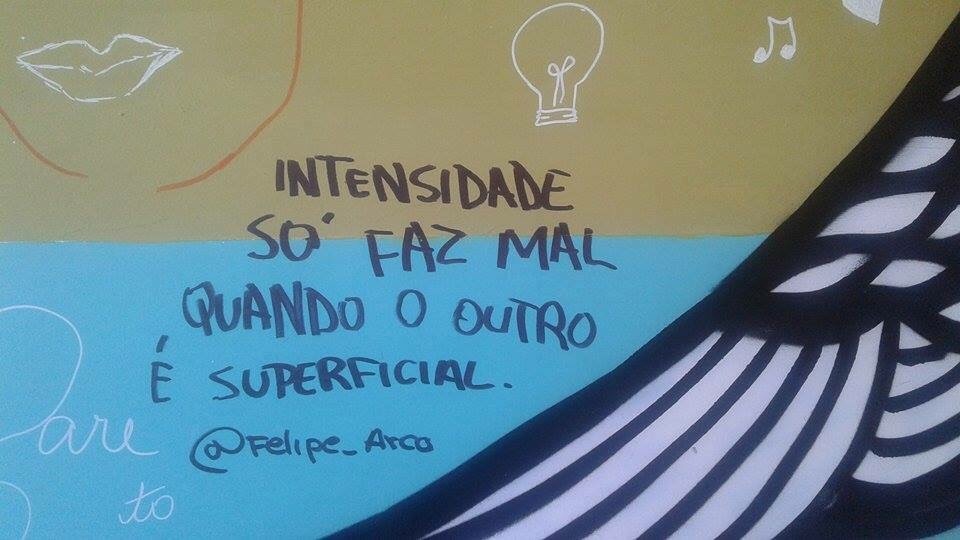 INTENSIDADE
SÓ FAZ MAL
QUANDO O OUTRO
É SUPERFICIAL.
@Felipe_Arco
Dare
to